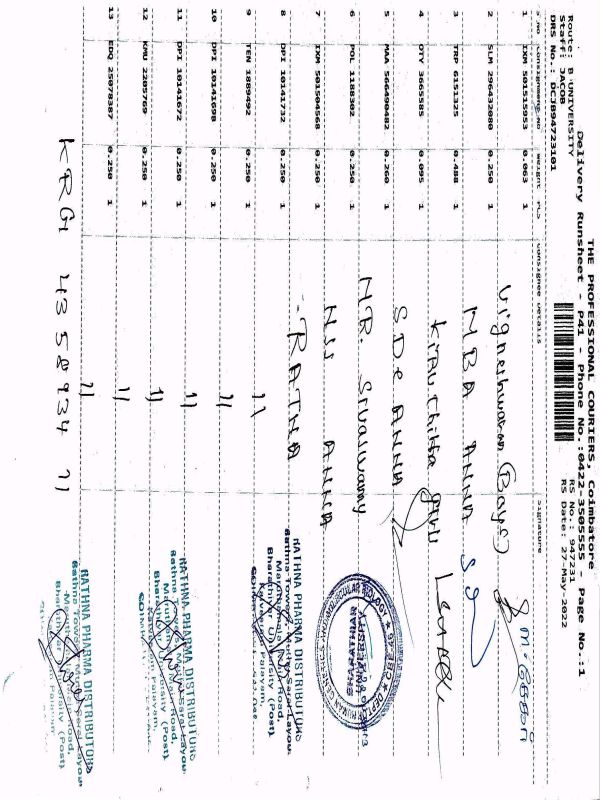 THE PROFESSIONAL COURIERS, Coimbatore
Delivery Runsheet - P41 - Phone No.:0422-3505555 - Page No.:1
Route: B UNIVERSITY
RS No.: 947231
Staff: JACOB
RS Date: 27-May-2022
DRS No.: DCJB94723101
S.No Consignment No Weight PCS Consignee Details Signature
1 IXM 501515953 0.063 1 Vigneshwaran (Boys)
2 SLM 296432080 0.250 1 MBA ANNA
3 TRP 6151325 0.488 1 Kiru thika
4 OTY 3665585 0.095 1 SDe ANNA
5 MAA 566490482 0.260 1 MR. Sivalwamy
6 POL 1188302 0.250 1 NSS ANNA
7 IXM 501504568 0.250 1 - RATNA
8 DPI 10141732 0.250 1 11
9 TEN 1889492 0.250 1 11
10 DPI 10141690 0.250 1 11
11 DPI 10141672 0.250 1 11
12 KMU 2205769 0.250 1 11
13 EDQ 25078387 0.250 1 11
KRG 4358934 11
RATHNA PHARMA DISTRIBUTORS
Rathna Towers,
Maruthamalai Main Road,
Bharathiar University (Post)
Kalveerampalayam,
RATHNA PHARMA DISTRIBUTORS
Rathna
Road,
(Post)
Palayam,
RATHNA PHARMA DISTRIBUTORS
Rathna Towers,
Road,
(Post)